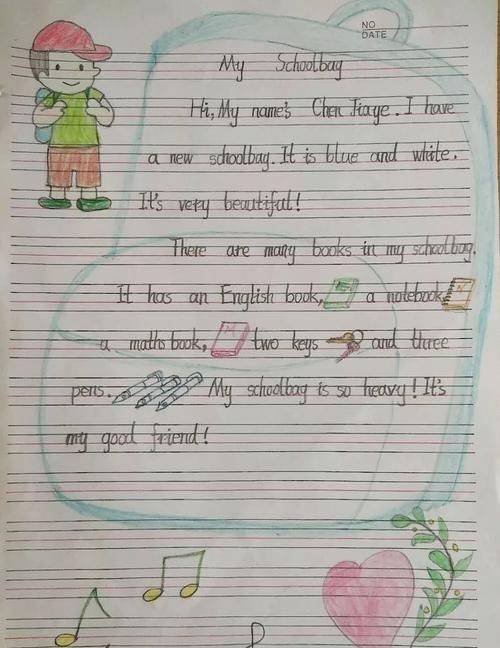 NO
DATE
My Schoolbag
Hi, My name's Chen Jiaye. I have
a new schoolbag. It is blue and white.
It's very beautiful!
There are many books in my schoolbag.
It has an English book, a notebook,
a maths book, two keys and three
pens. My schoolbag is so heavy! It's
my good friend!